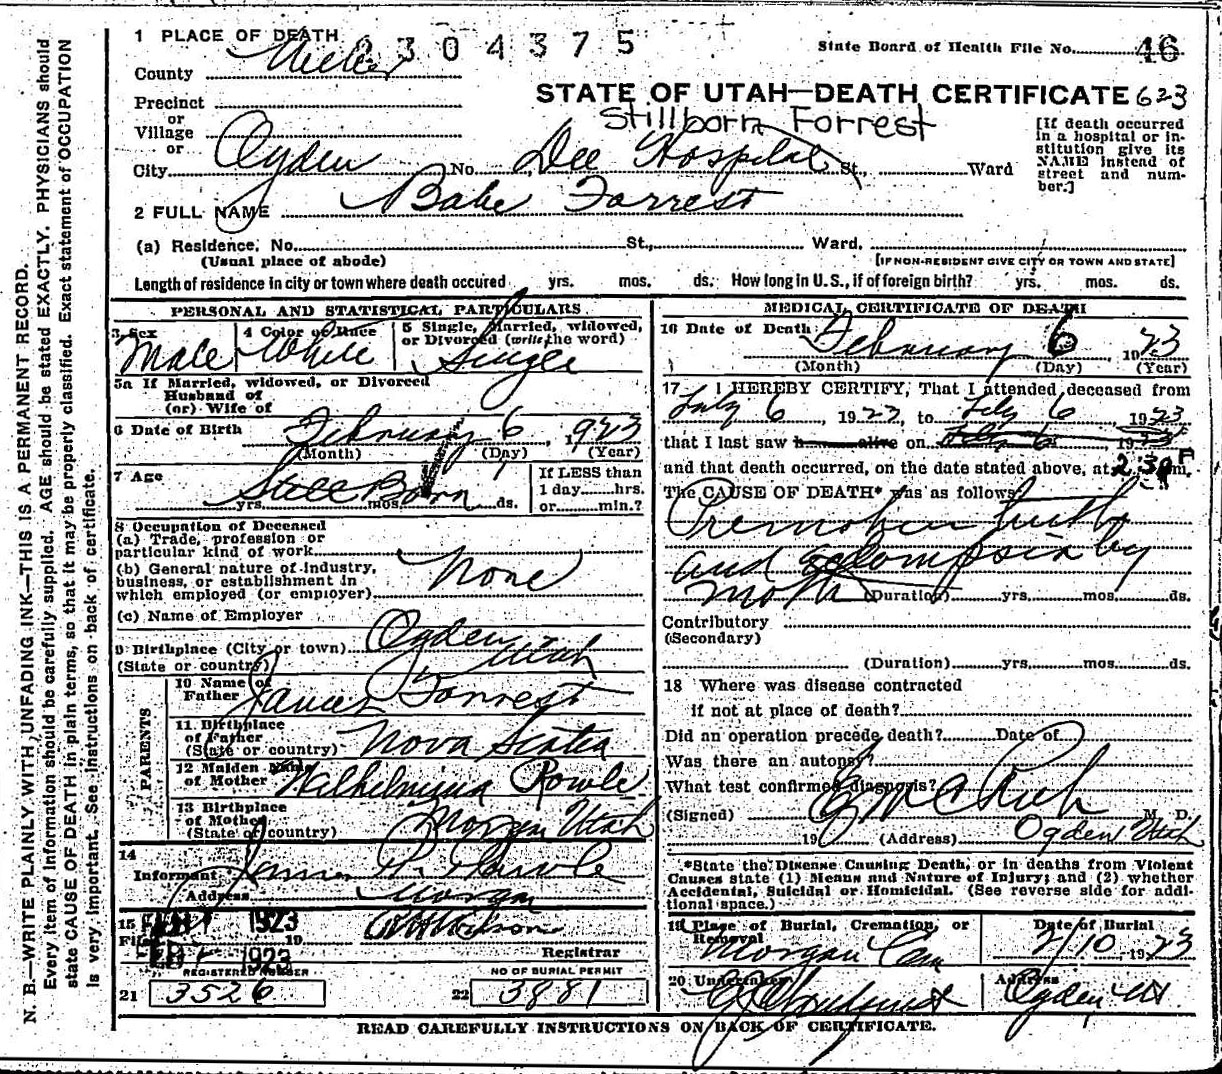 1 PLACE OF DEATH 2 3 0 4 3 7 5 State Board of Health File No. 46
County Weber
STATE OF UTAH—DEATH CERTIFICATE 623
Precinct
or
Village
or
Stillborn Forrest
[If death occurred in a hospital or institution give its NAME instead of street and number.]
City Ogden No. Dee Hospital St., Ward
2 FULL NAME Babe Forrest
(a) Residence. No. St., Ward.
(Usual place of abode) [IF NON-RESIDENT GIVE CITY OR TOWN AND STATE]
Length of residence in city or town where death occured yrs. mos. ds. How long in U.S., if of foreign birth? yrs. mos. ds.
PERSONAL AND STATISTICAL PARTICULARS
3 Sex Male
4 Color or Race White
5 Single, Married, widowed, or Divorced (write the word) Single
5a If Married, widowed, or Divorced
Husband of
(or) Wife of
6 Date of Birth February 6, 1923
(Month) (Day) (Year)
7 Age Still Born
yrs. mos. ds.
If LESS than
1 day hrs.
or min.?
8 Occupation of Deceased
(a) Trade, profession or
particular kind of work
(b) General nature of industry,
business, or establishment in
which employed (or employer) None
(c) Name of Employer
9 Birthplace (City or town) Ogden
(State or country) Utah
PARENTS
10 Name of
Father James Forrest
11 Birthplace
of Father
(State or country) Nova Scotia
12 Maiden Name
of Mother Wilhelmina Rowle
13 Birthplace
of Mother
(State or country) Morgan Utah
14
Informant James R. Rowle
Address Morgan
15 1923
Filed 19
1923
Registrar
REGISTERED NUMBER
21 3526
NO OF BURIAL PERMIT
22 3881
MEDICAL CERTIFICATE OF DEATH
16 Date of Death February 6, 1923
(Month) (Day) (Year)
17 I HEREBY CERTIFY, That I attended deceased from
Feby 6, 1923, to Feby 6 1923
that I last saw h alive on Feby 6 1923
and that death occurred, on the date stated above, at 2:30 P m.
The CAUSE OF DEATH* was as follows:
Premature birth
and eclampsia by
Moth
(Duration) yrs. mos. ds.
Contributory
(Secondary)
(Duration) yrs. mos. ds.
18 Where was disease contracted
if not at place of death?
Did an operation precede death? Date of
Was there an autopsy?
What test confirmed diagnosis?
(Signed) Rich M. D.
19 (Address) Ogden Utah
*State the Disease Causing Death, or in deaths from Violent
Causes state (1) Means and Nature of Injury; and (2) whether
Accidental, Suicidal or Homicidal. (See reverse side for addi-
tional space.)
19 Place of Burial, Cremation, or
Removal
Morgan Cem
Date of Burial
2/10 1923
20 Undertaker
Address
Ogden, Ut.
READ CAREFULLY INSTRUCTIONS ON BACK OF CERTIFICATE.
N. B.—WRITE PLAINLY WITH UNFADING INK—THIS IS A PERMANENT RECORD.
Every item of information should be carefully supplied. AGE should be stated EXACTLY. PHYSICIANS should
state CAUSE OF DEATH in plain terms, so that it may be properly classified. Exact statement of OCCUPATION
is very important. See instructions on back of certificate.